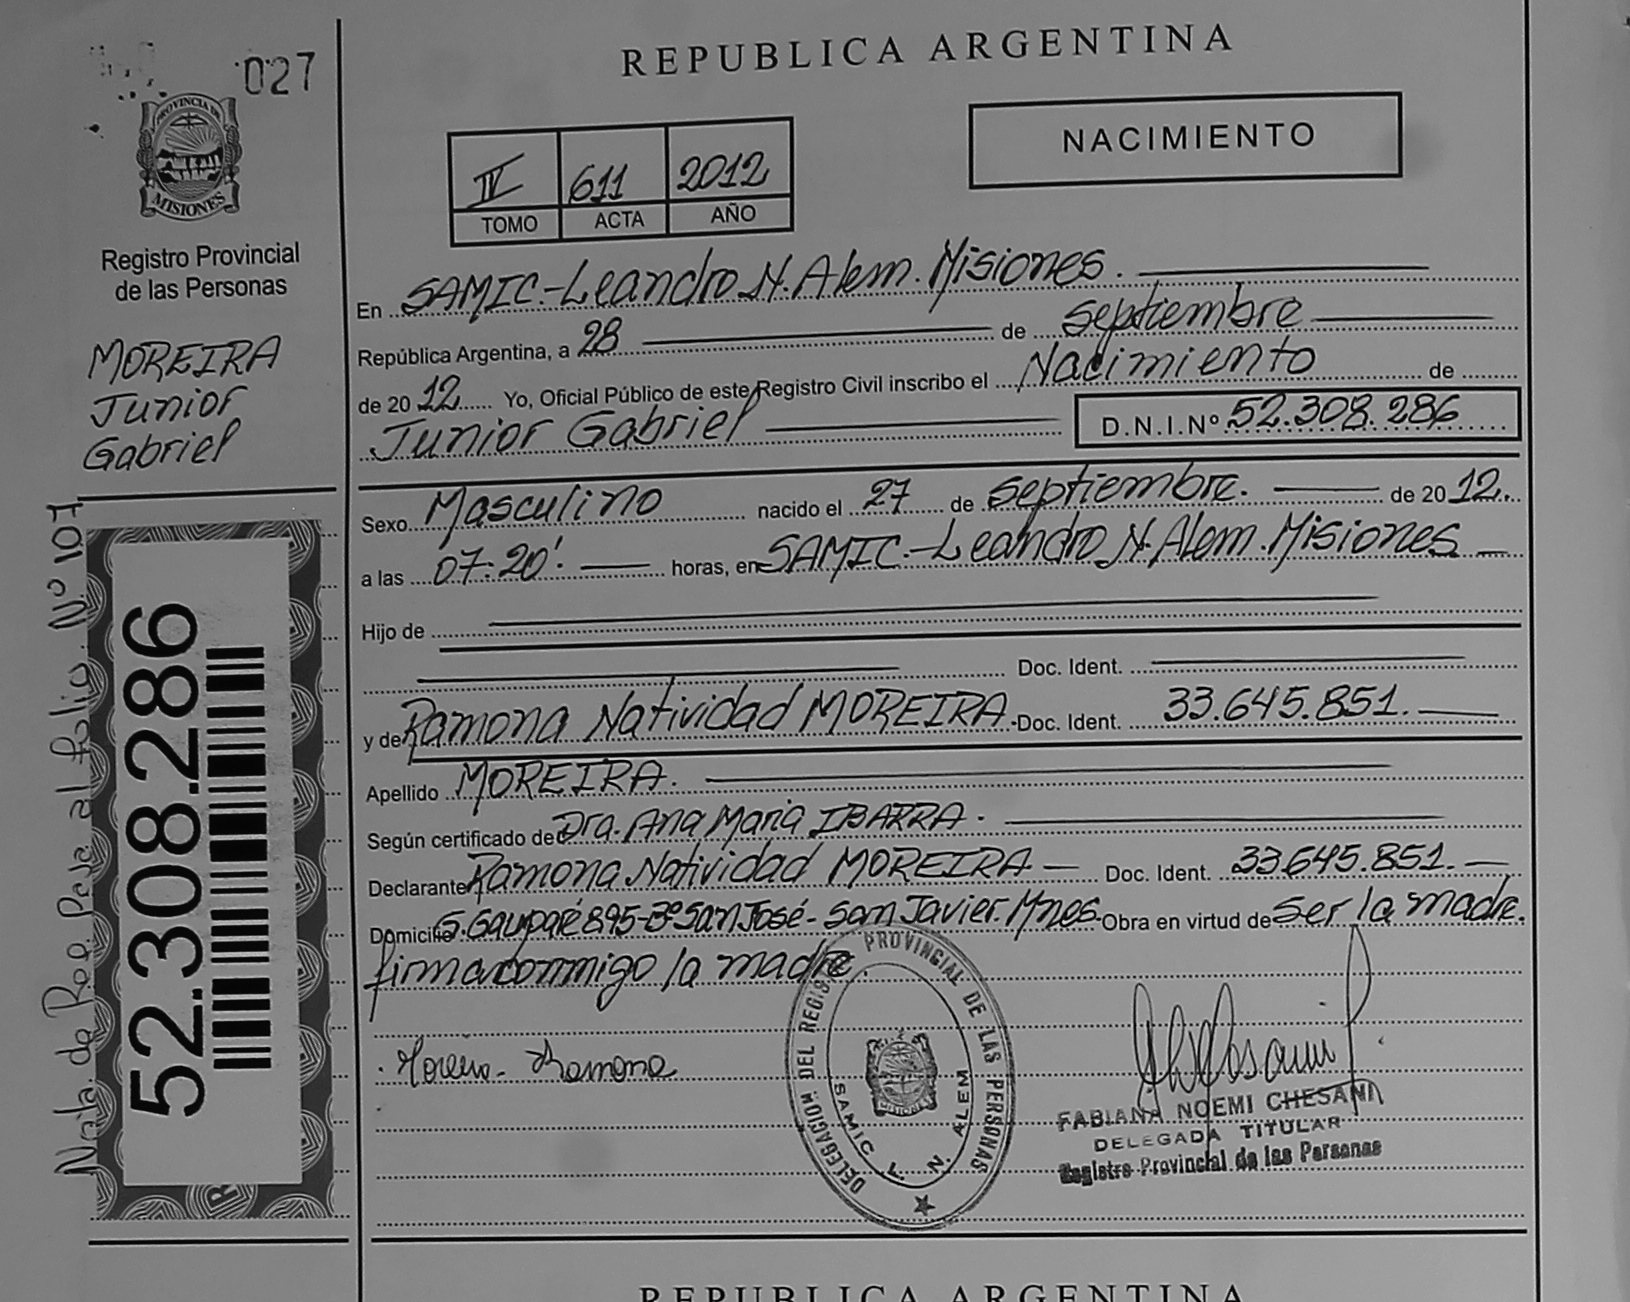 027
REPUBLICA ARGENTINA
NACIMIENTO
IV 611 2012
TOMO ACTA AÑO
PROVINCIA DE
MISIONES
Registro Provincial
de las Personas
MOREIRA
Junior
Gabriel
En SAMIC.-Leandro N. Alem. Misiones.
República Argentina, a 28 de septiembre
de 2012 Yo, Oficial Público de este Registro Civil inscribo el Nacimiento de
Junior Gabriel D.N.I.Nº 52.308.286
Sexo Masculino nacido el 27 de septiembre. de 2012
a las 07:20'. horas, en SAMIC.-Leandro N. Alem. Misiones
Hijo de
Doc. Ident.
y de Ramona Natividad MOREIRA.- Doc. Ident. 33.645.851.
Apellido MOREIRA.
Según certificado de Dra. Ana Maria IBARRA.
Declarante Ramona Natividad MOREIRA Doc. Ident. 33.645.851.
Domicilio 895-Bº San José- San Javier. Mnes. Obra en virtud de ser la madre.
firma conmigo la madre.
Moreira Ramona
DELEGACIÓN DEL REGISTRO PROVINCIAL DE LAS PERSONAS
SAMIC L. N. ALEM
MISIONES
FABIANA NOEMI CHESANI
DELEGADA TITULAR
Registro Provincial de las Personas
Nota de Rec. Pasa al folio. Nº 107
52.308.286
REPUBLICA ARGENTINA